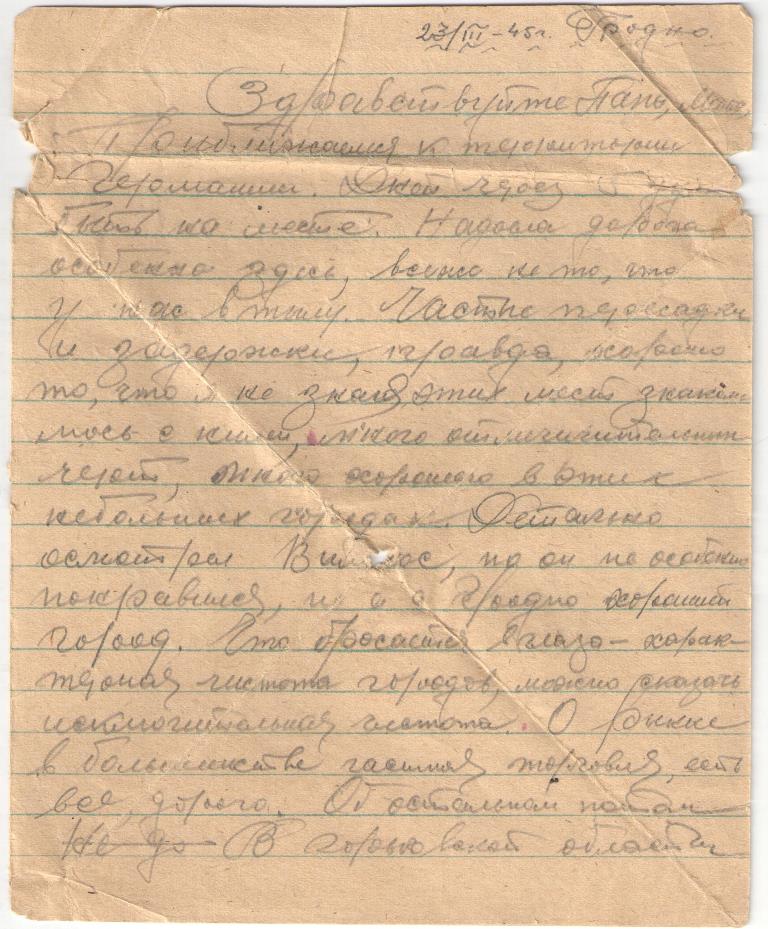 23/III-45г. Гродно.
Здравствуйте Папа, Мама,
Приближаемся к территории
Германии. Дней через
быть на месте. Надоела дорога
особенно здесь, всё же не то, что
у нас в тылу. Частые пересадки
и задержки, правда, хорошо
то, что я не зная этих мест знаком-
люсь с ними, много отличительных
черт, много хорошего в этих
небольших городах. Детально
осмотрел Вильнюс, но он не особенно
понравился, а Гродно хороший
город. Что бросается в глаза – харак-
терная чистота городов, можно сказать
исключительная чистота. О рынке
в большинстве частная торговля, есть
всё, дорого. Об остальном потом
Не до В горьковской области